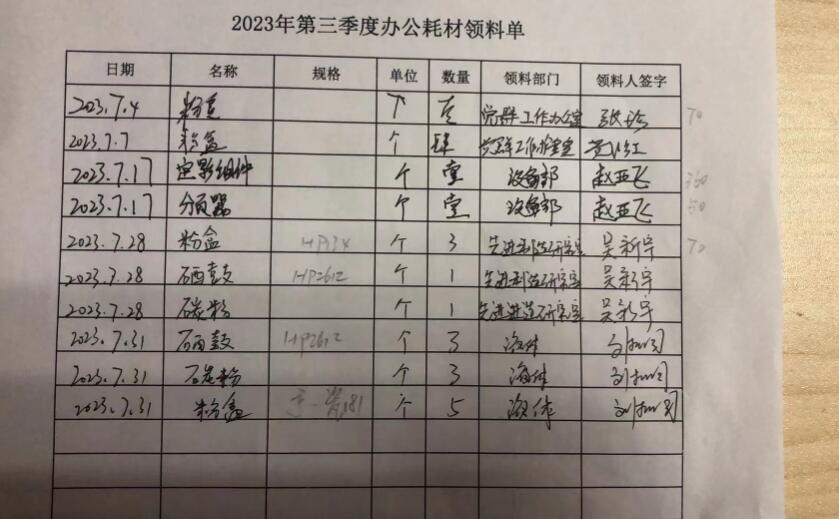 2023年第三季度办公耗材领料单
日期 名称 规格 单位 数量 领料部门 领料人签字
2023.7.4 粉盒 个 党群工作办公室 70
2023.7.7 粉盒 个 肆 党群工作办公室
2023.7.17 定影组件 个 壹 设备部 赵亚飞 360
2023.7.17 分页器 个 壹 设备部 赵亚飞 50
2023.7.28 粉盒 个 3 先进制造研究室 吴新宇 70
2023.7.28 硒鼓 HP2612 个 1 先进制造研究室 吴新宇
2023.7.28 碳粉 个 1 先进制造研究室 吴新宇
2023.7.31 硒鼓 HP2612 个 3
2023.7.31 碳粉 个 3
2023.7.31 粉盒 个 5